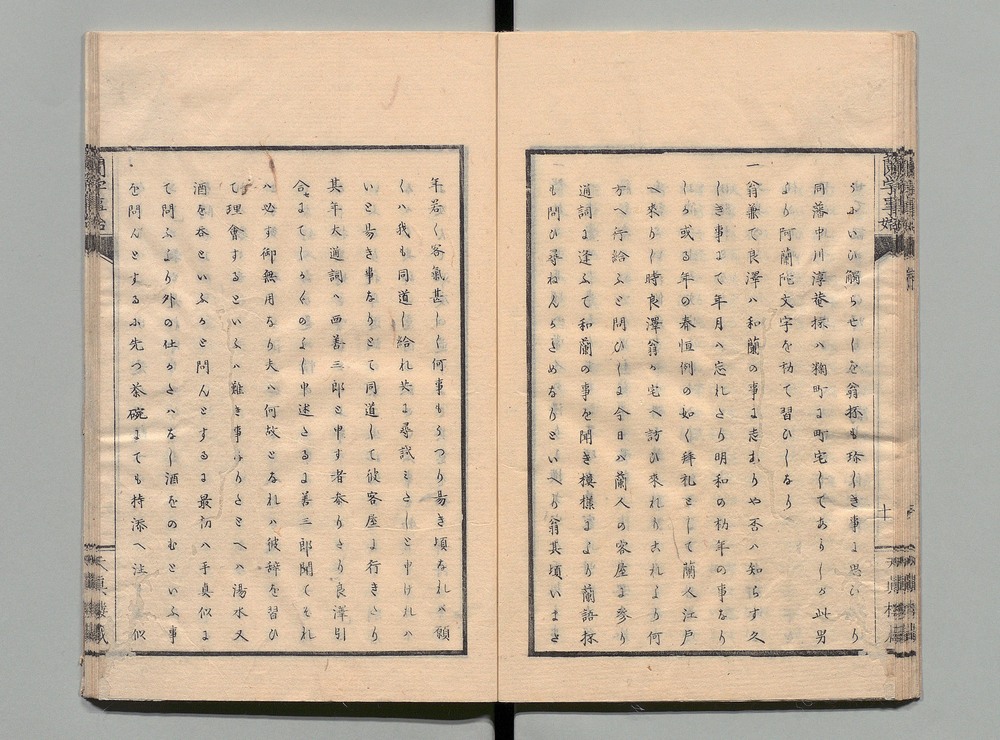 らふいひ觸らせしを翁抔も珍しき事に思ひたり
同藩中川淳菴抔ハ麹町に町宅してありしか此男
より阿蘭陀文字を初て習ひしなり
一翁兼て良澤ハ和蘭の事に志ありや否ハ知らす久
しき事にて年月ハ忘れたり明和の初年の事なり
しか或る年の春恒例の如く拜礼として蘭人江戸
へ來りし時良澤翁か宅へ訪ひ來れり是れより何
方へ行給ふと問ひしに今日ハ蘭人の客屋に參り
通詞に逢ふて和蘭の事を聞き模樣により蘭語抔
も問ひ尋ねんかためなりといへり翁其頃いまた
年若く客氣甚しく何事もうつり易き頃なれハ願
くハ我も同道し給れ共に尋試たしと申けれハ
いと易き事なりとて同道して彼客屋に行きたり
其年大通詞ハ西善三郎と申す者參りたり良澤引
合にてしか〱のよし申述たるに善三郎聞てそれ
ハ必す御無用なり夫ハ何故となれハ彼辭を習ひ
て理會するといふハ難き事なりたとヘハ湯水又
酒を呑といふかと問んとするに最初ハ手真似に
て問ふより外の仕かたハなし酒をのむといふ事
を問んとするに先つ茶碗にても持添へ注く真似
蘭學事始
十
天真樓藏